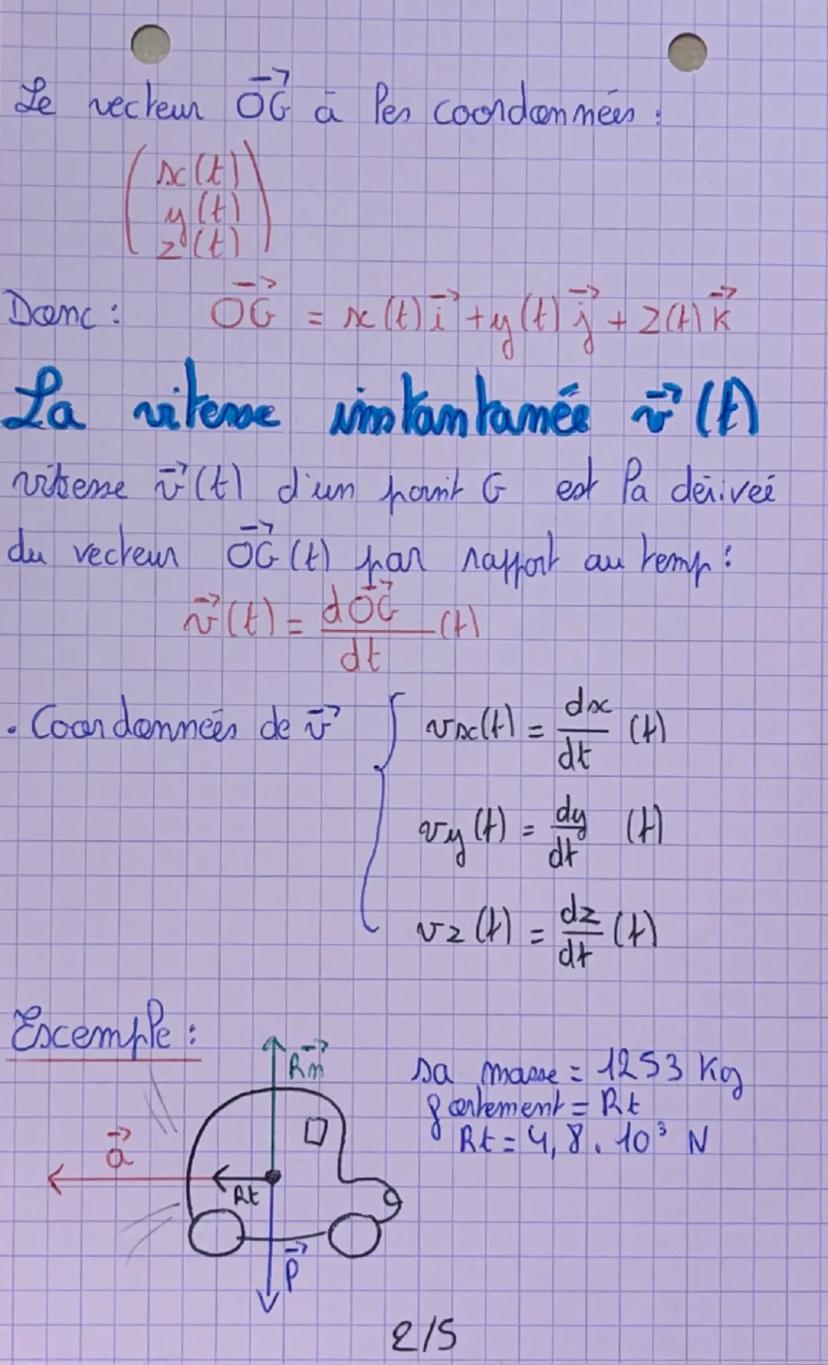 Le vecteur OG→ à les coordonnées :
x(t)
y(t)
z(t)
Donc : OG→ = x(t)i→ + y(t)j→ + z(t)k→
La vitesse instantanée v→(t)
vitesse v→(t) d'un point G est la dérivée
du vecteur OG→(t) par rapport au temp :
v→(t) = dOG→/dt (t)
. Coordonnées de v→ { vx(t) = dx/dt (t)
vy(t) = dy/dt (t)
vz(t) = dz/dt (t)
Excemple :
Rn→
sa masse = 1253 Kg
frottement = Rt
Rt = 4,8 . 10³ N
a→
Rt
P→
2/5